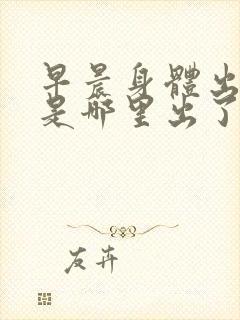 早晨身體出
是哪里出了
友卉